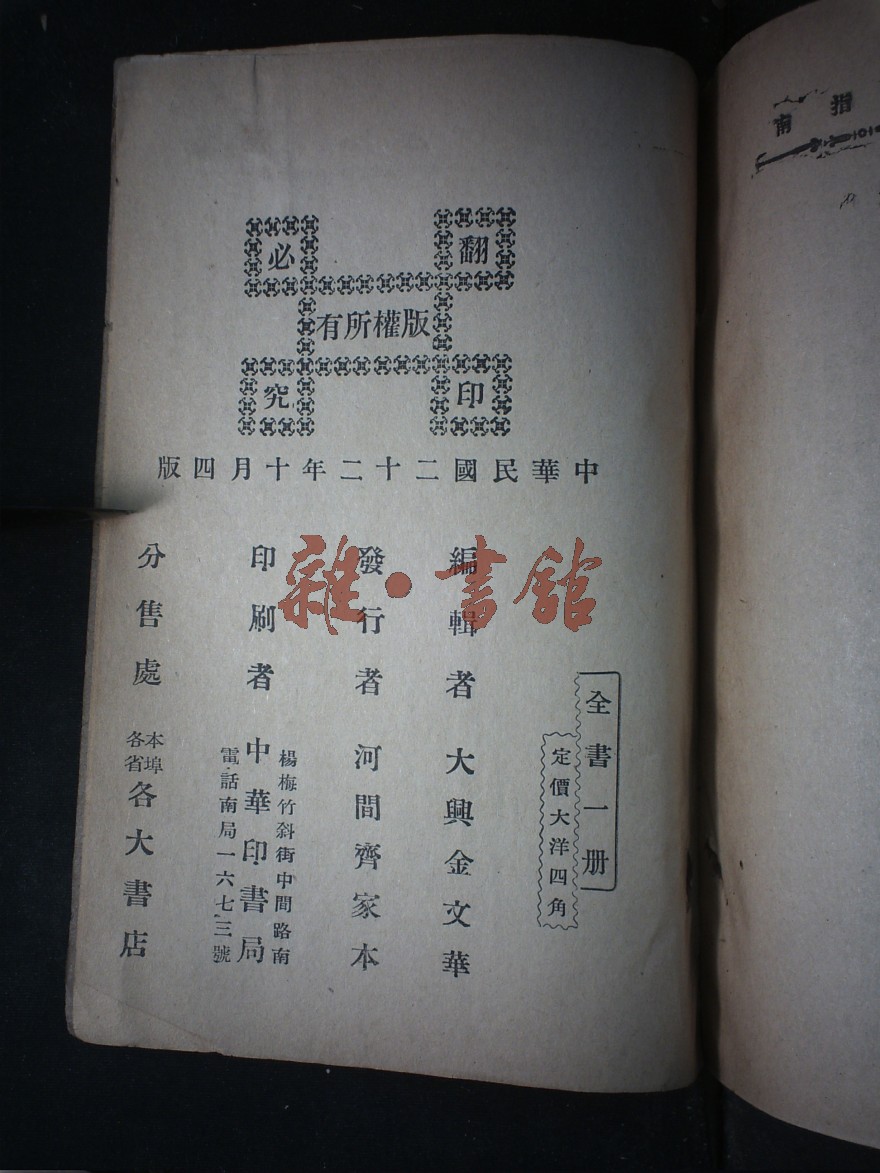 翻印必究
版權所有
中華民國二十二年十月四版
全書一册
定價大洋四角
編輯者 大興金文華
發行者 河間齊家本
印刷者 中華印書局
楊梅竹斜街中間路南
電話南局一六七三號
分售處 本埠各省各大書店
雜·書館
指南